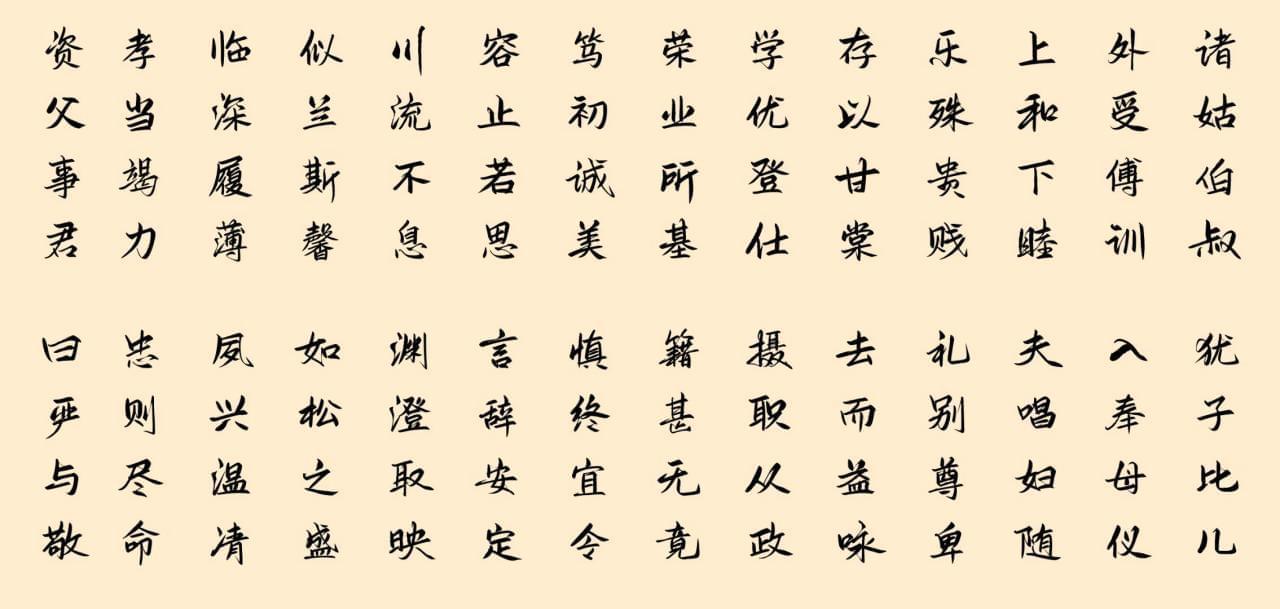 资父事君
曰严与敬
孝当竭力
忠则尽命
临深履薄
夙兴温凊
似兰斯馨
如松之盛
川流不息
渊澄取映
容止若思
言辞安定
笃初诚美
慎终宜令
荣业所基
籍甚无竟
学优登仕
摄职从政
存以甘棠
去而益咏
乐殊贵贱
礼别尊卑
上和下睦
夫唱妇随
外受傅训
入奉母仪
诸姑伯叔
犹子比儿